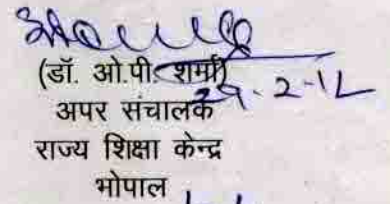 (डॉ. ओ.पी. शर्मा)
29-2-12
अपर संचालक
राज्य शिक्षा केन्द्र
भोपाल